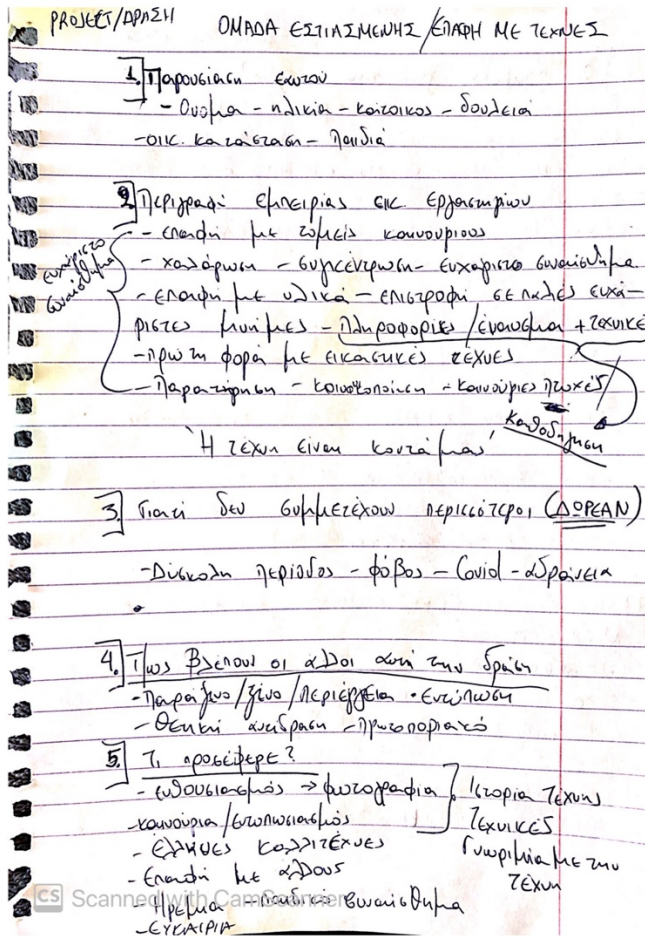 PROJECT/ΔΡΑΣΗ ΟΜΑΔΑ ΕΣΤΙΑΣΜΕΝΗΣ/ΕΠΑΦΗ ΜΕ ΤΕΧΝΕΣ
1. Παρουσίαση εαυτού
- Όνομα - ηλικία - κάτοικος - δουλειά
- οικ. κατάσταση - Παιδιά
2. Περιγραφή εμπειρίας εικ. εργαστηρίων
ευχάριστο συναίσθημα
- επαφή με τομείς καινούριους
- χαλάρωση - συγκέντρωση - ευχάριστο συναίσθημα
- επαφή με υλικά - επιστροφή σε παλές ευχά-
ριστες μνήμες - Πληροφορίες/έναυσμα + τεχνικές
- πρώτη φορά με εικαστικές τέχνες
- Παρατήρηση - κοινωνικοποίηση - καινούριες πτυχές/
καθοδήγηση
'Η τέχνη είναι κοντά μας'
3. Γιατί δεν συμμετέχουν περισσότεροι (ΔΩΡΕΑΝ)
- Δύσκολη περίοδος - φόβος - Covid - αδράνεια
4. Πως βλέπουν οι άλλοι αυτή την δράση
- Παράξενο/ξένο/περιέργεια - Εντύπωση
- Θετική αντίδραση - πρωτοποριακό
5. Τι προσέφερε?
- ενθουσιασμός → φωτογραφία Ιστορία Τέχνης
- καινούρια/εντυπωσιασμός Τεχνικές
- Έλληνες καλλιτέχνες Γνωριμία με την
- Επαφή με άλλους Τέχνη
- Ηρεμία - παιδικό συναίσθημα
- ΕΥΚΑΙΡΙΑ
CS Scanned with CamScanner